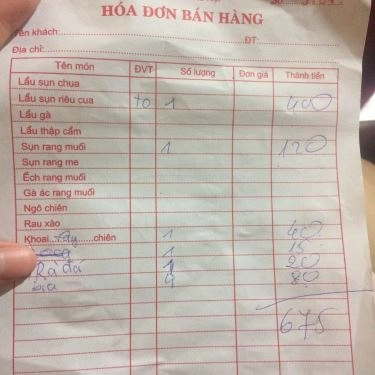 HÓA ĐƠN BÁN HÀNG
Tên khách: ĐT:
Địa chỉ:
Tên món ĐVT Số lượng Đơn giá Thành tiền
Lẩu sụn chua
Lẩu sụn riêu cua to 1 400
Lẩu gà
Lẩu thập cẩm
Sụn rang muối 1 120
Sụn rang me
Ếch rang muối
Gà ác rang muối
Ngô chiên
Rau xào
Khoai tây chiên 1 40
1 15
Rà đá 1 20
bia 4 80
675